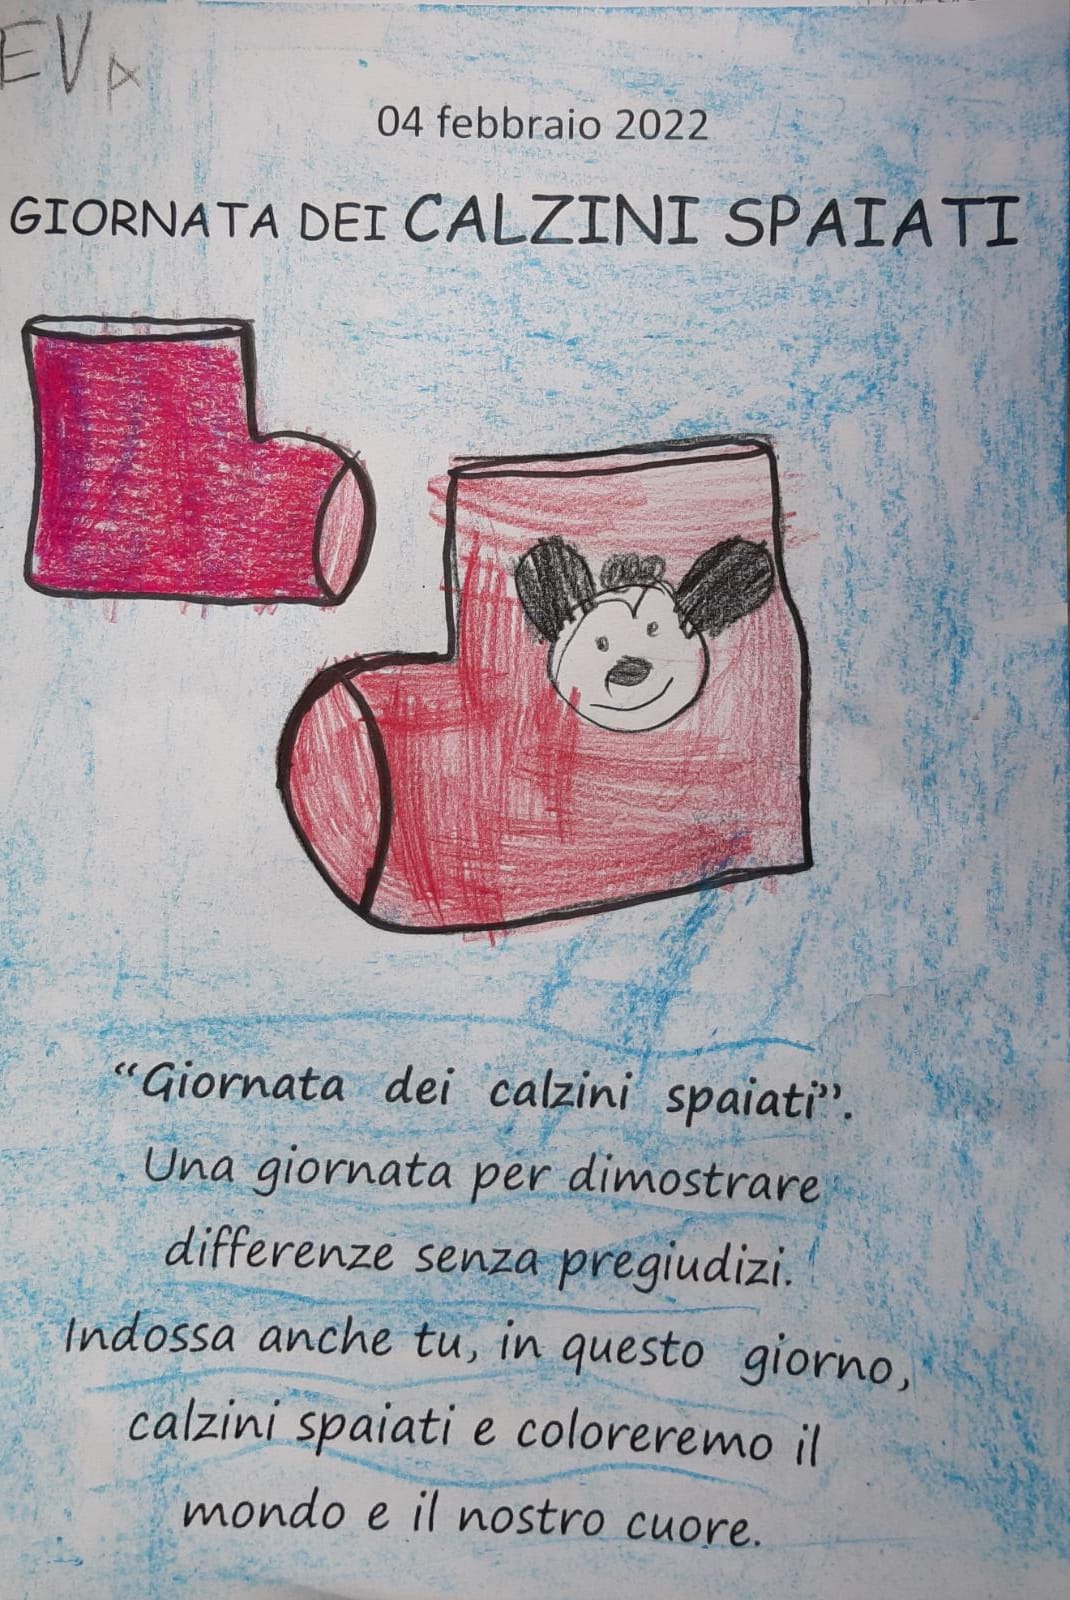 EVA
04 febbraio 2022
GIORNATA DEI CALZINI SPAIATI
“Giornata dei calzini spaiati”.
Una giornata per dimostrare
differenze senza pregiudizi.
Indossa anche tu, in questo giorno,
calzini spaiati e coloreremo il
mondo e il nostro cuore.